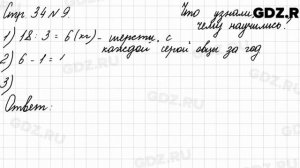 Стр. 34 N 9
Что узнали,
чему научились?
GDZ.R
1) 18 : 3 = 6 (кг) - шерсти, с
каждой серой овцы за год
2) 6 - 1 =
3)
Ответ:
© GDZ.RU